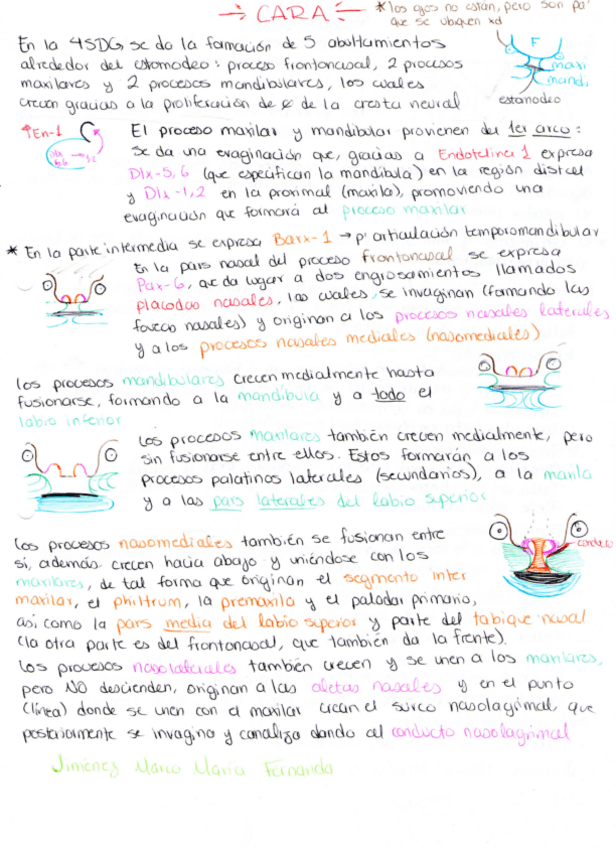 → CARA ←
* los ojos no están, pero son pa'
que se ubiquen xd
En la 4SDG se da la formación de 5 abultamientos
alrededor del estomodeo: proceso frontonasal, 2 procesos
maxilares y 2 procesos mandibulares, los cuales
crecen gracias a la proliferación de ¢ de la cresta neural
F
maxi
mandi
estomodeo
↑En-1
Dlx
5,6
El proceso maxilar y mandibular provienen del 1er arco:
se da una evaginación que, gracias a Endotelina 1 expresa
Dlx-5,6 (que especifican la mandíbula) en la región distal
y Dlx-1,2 en la proximal (maxila), promoviendo una
evaginación que formará al proceso maxilar
* En la parte intermedia se expresa Barx-1 → p' articulación temporomandibular
En la pars nasal del proceso frontonasal se expresa
Pax-6, que da lugar a dos engrosamientos llamados
placodas nasales, las cuales se invaginan (formando las
foveas nasales) y originan a los procesos nasales laterales
y a los procesos nasales mediales (nasomediales)
Los procesos mandibulares crecen medialmente hasta
fusionarse, formando a la mandíbula y a todo el
labio inferior
Los procesos maxilares también crecen medialmente, pero
sin fusionarse entre ellos. Estos formarán a los
procesos palatinos laterales (secundarios), a la maxila
y a las pars laterales del labio superior
Los procesos nasomediales también se fusionan entre
sí, además crecen hacia abajo y uniéndose con los
maxilares, de tal forma que originan el segmento inter
maxilar, el philtrum, la premaxila y el paladar primario,
así como la pars media del labio superior y parte del tabique nasal
(la otra parte es del frontonasal, que también da la frente).
conducto
Los procesos nasolaterales también crecen y se unen a los maxilares,
pero NO descienden, originan a las aletas nasales y en el punto
(línea) donde se unen con el maxilar crean el surco nasolagrimal, que
posteriormente se invagina y canaliza dando al conducto nasolagrimal
Jiménez Marco María Fernanda